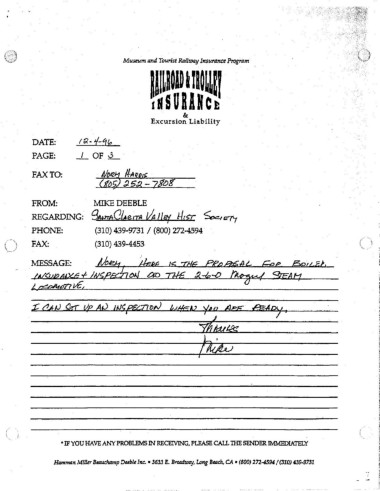 Museum and Tourist Railway Insurance Program
RAILROAD & TROLLEY
INSURANCE
&
Excursion Liability
DATE: 12-4-96
PAGE: 1 OF 3
FAX TO: NORM HARRIS
(805) 252-7808
FROM: MIKE DEEBLE
REGARDING: SANTA CLARITA VALLEY HIST SOCIETY
PHONE: (310) 439-9731 / (800) 272-4594
FAX: (310) 439-4453
MESSAGE: NORM, HERE IS THE PROPOSAL FOR BOILER
INSURANCE + INSPECTION OD THE 2-6-0 Mogul STEAM
LOCOMOTIVE.
I CAN SET UP AN INSPECTION WHEN YOU ARE READY.
Thanks
Mike
* IF YOU HAVE ANY PROBLEMS IN RECEIVING, PLEASE CALL THE SENDER IMMEDIATELY
Hamman Miller Beauchamp Deeble Inc. • 3633 E. Broadway, Long Beach, CA • (800) 272-4594 / (310) 439-9731